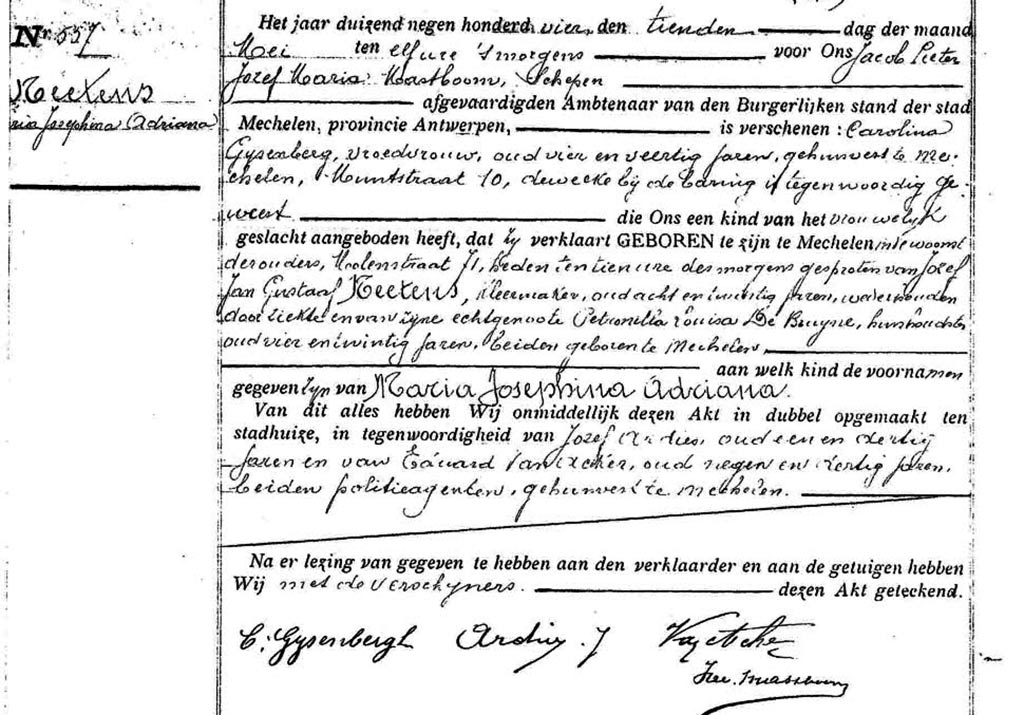 Nr 557
Het jaar duizend negen honderd vier, den tienden dag der maand
Mei ten elfure 's morgens voor Ons Jacob Pieter
Jozef Maria Mastboom, Schepen
afgevaardigden Ambtenaar van den Burgerlijken stand der stad
Mechelen, provincie Antwerpen, is verschenen : Carolina
Gysenberg, vroedvrouw, oud vier en veertig jaren, gehuisvest te Me-
chelen, Muntstraat 10, dewelke bij de baring is tegenwoordig ge-
weest die Ons een kind van het vrouwelyk
geslacht aangeboden heeft, dat zy verklaart GEBOREN te zijn te Mechelen,
der ouders, Molenstraat 71, heden ten tien ure des morgens gesproten van Jozef
Jan Gustaaf kleermaker, oud acht en twintig jaren, wederhouden
door ziekte en van zyne echtgenoote Petronilla Louisa De Bruyne,
oud vier en twintig jaren, beiden geboren te Mechelen,
aan welk kind de voornamen
gegeven zyn van Maria Josephina Adriana.
Van dit alles hebben Wij onmiddellijk dezen Akt in dubbel opgemaakt ten
stadhuize, in tegenwoordigheid van Jozef oud een en dertig
jaren en van Eduard oud negen en dertig jaren,
beiden politieagenten, gehuisvest te Mechelen.
Na er lezing van gegeven te hebben aan den verklaarder en aan de getuigen hebben
Wij met de verschyners. dezen Akt geteekend.
C. Gysenbergh
ria Josephina Adriana